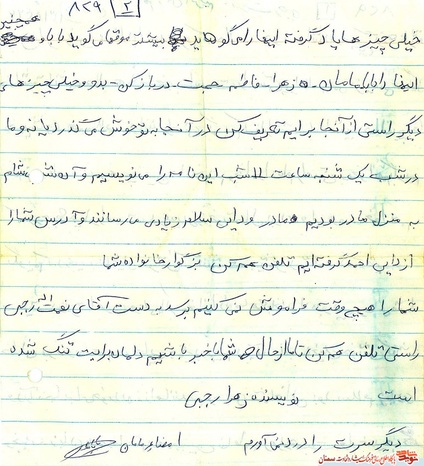 ۸۲۹ ۲ همچنین
خیلی چیزها یاد گرفته اینها را می گوید بیشتر موقعا می گوید بابا و
اینها را بابا مامان - زهرا - فاطمه - حجت - در باز کن - بدو و خیلی چیزهای
دیگر راستی از آنجا برایم تعریف کن در آنجا به تو خوش می گذرد یا نه و ما
در شب یک شنبه ساعت ۱۱ شب این نامه را می نویسیم و آن شب شام
به منزل مادر بودیم مادر و دایی سلام زیادی می رسانند و آدرس شما را
از دایی احمد گرفته ایم تلفن هم کن بزرگوار خانواده شما
شما را هیچ وقت فراموش نمی کنیم برسد به دست آقای نعمت اله رجبی
راستی تلفن هم کن تا ما از حال شما با خبر باشیم دلمان برایت تنگ شده
است نویسنده زهرا رجبی
دیگر سرت را درد نمی آورم امضاء مامان